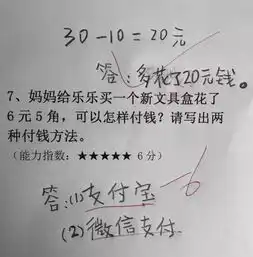 30-10=20元
答:多花了20元钱。
7、妈妈给乐乐买一个新文具盒花了
6元5角，可以怎样付钱？请写出两
种付钱方法。
（能力指数：★★★★★ 6分）
答:(1)支付宝 -6
(2)微信支付.